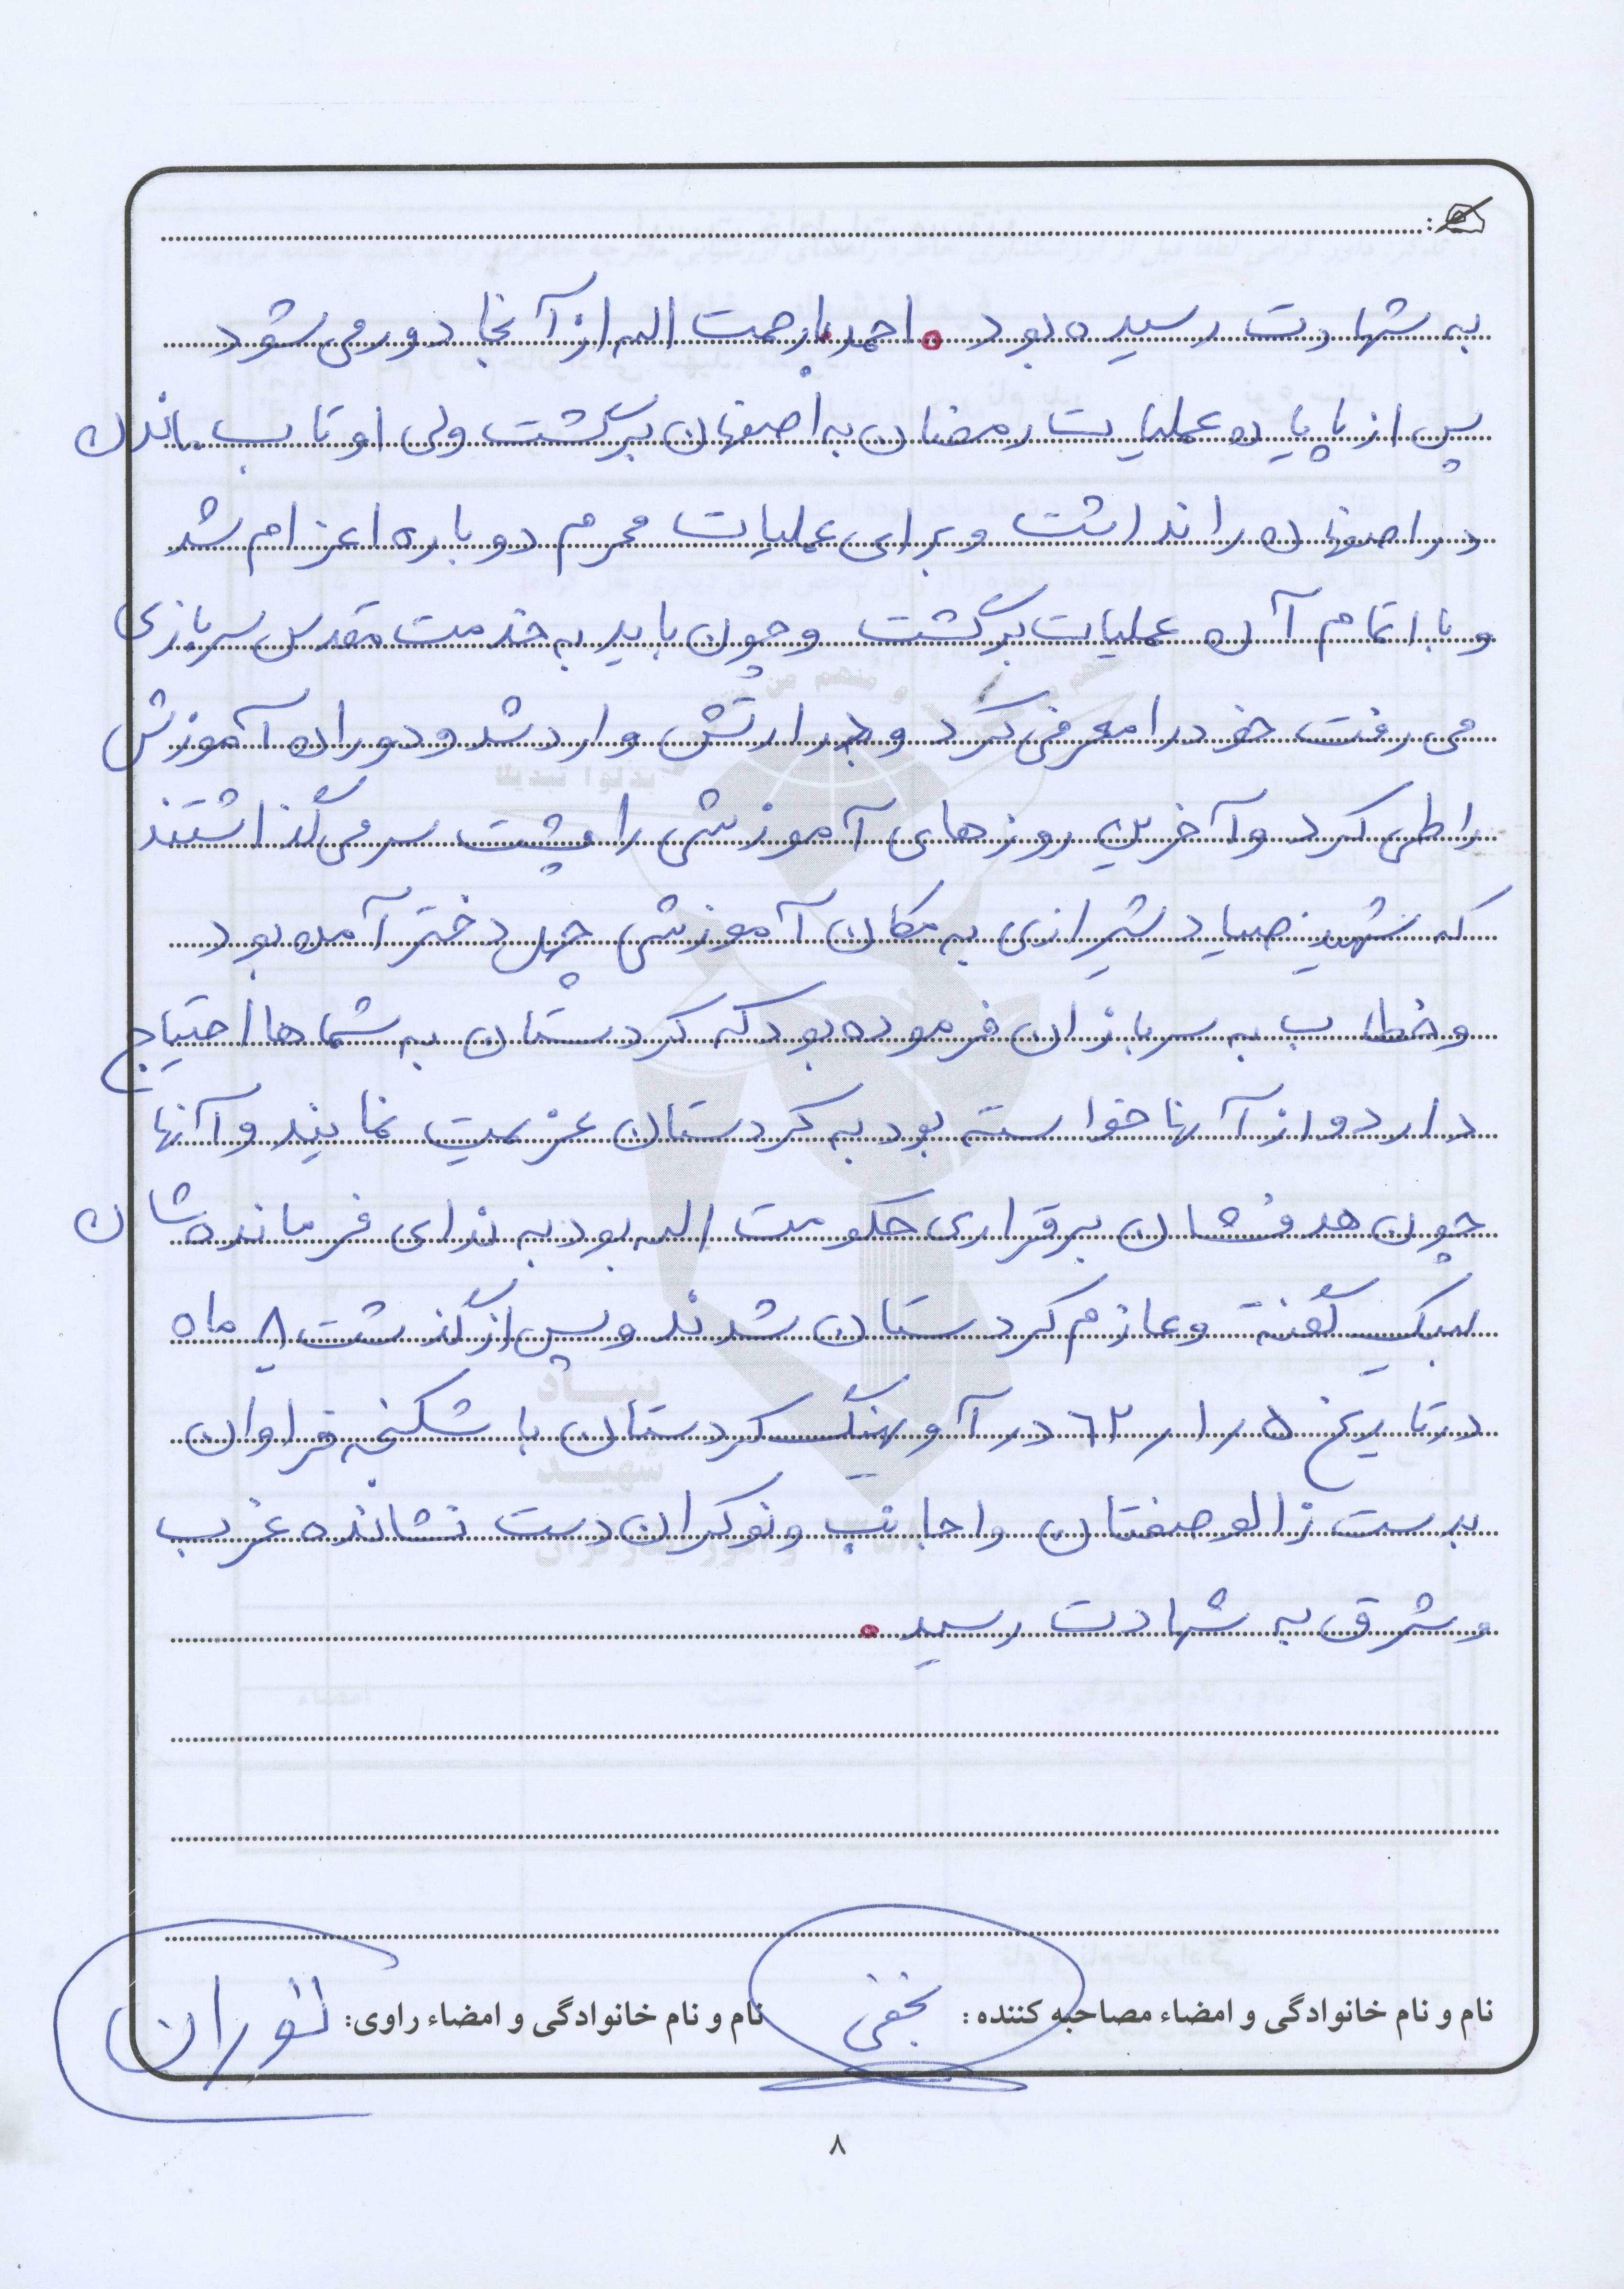 به شهادت رسیده بود. احمد با رحمت اله از آنجا دور می شود
پس از پایان عملیات رمضان به اصفهان برگشت ولی او تاب ماندن
در اصفهان را نداشت و برای عملیات محرم دوباره اعزام شد
و با اتمام آن عملیات برگشت و چون باید به خدمت مقدس سربازی
می رفت خود را معرفی کرد و در ارتش وارد شد و دوران آموزش
را طی کرد و آخرین روزهای آموزشی را پشت سر می گذاشتند
که شهید صیاد شیرازی به مکان آموزشی چهل دختر آمده بود
و خطاب به سربازان فرموده بود که کردستان به شماها احتیاج
دارد و از آنها خواسته بود به کردستان عزیمت نمایند و آنها
چون هدفشان برقراری حکومت اله بود به ندای فرمانده شان
لبیک گفته و عازم کردستان شدند و پس از گذشت ۸ ماه
در تاریخ ۵ / ۱ / ۶۲ در آوهنگ کردستان با شکنجه فراوان
بدست زالوصفتان و اجانب و نوکران دست نشانده غرب
و شرق به شهادت رسید.
نام و نام خانوادگی و امضاء مصاحبه کننده : نجفی نام و نام خانوادگی و امضاء راوی:
۸